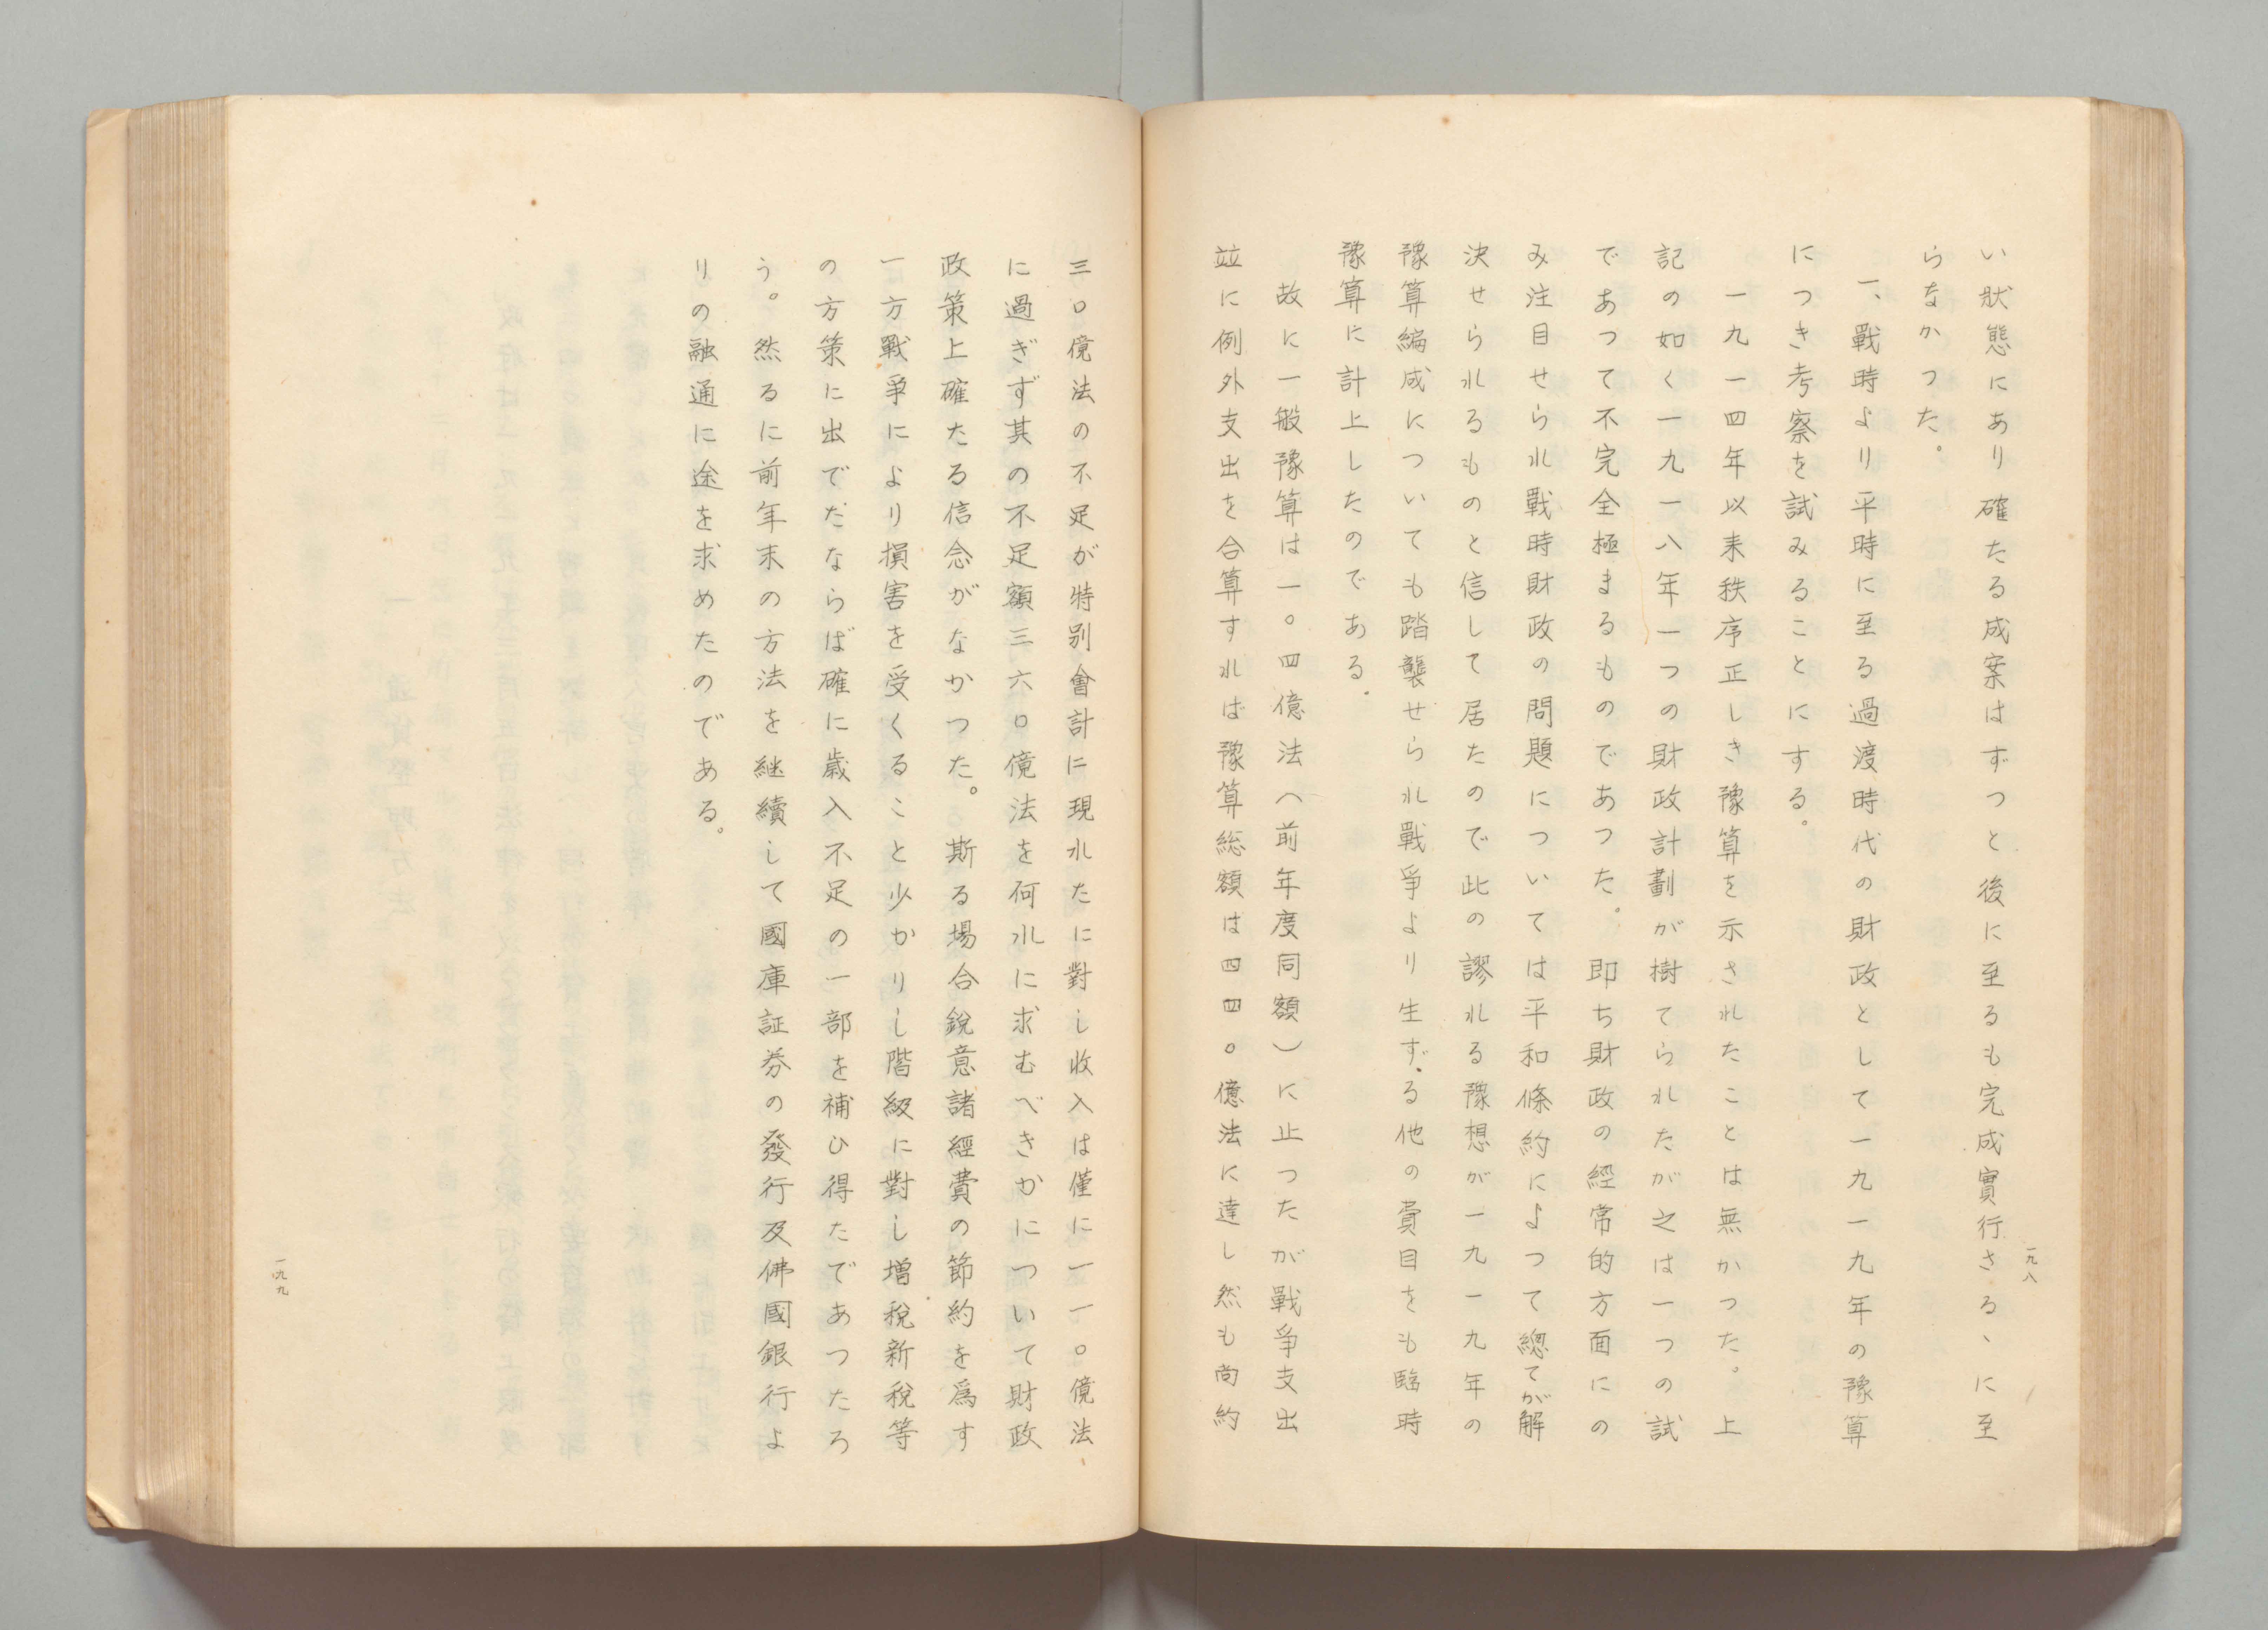 い狀態にあり確たる成案はずつと後に至るも完成實行さるゝに至
らなかつた。
一、戰時より平時に至る過渡時代の財政として一九一九年の豫算
につき考察を試みることにする。
一九一四年以来秩序正しき豫算を示されたことは無かつた。上
記の如く一九一八年一つの財政計劃が樹てられたが之は一つの試
であつて不完全極まるものであつた。即ち財政の經常的方面にの
み注目せられ戰時財政の問題については平和條約によつて總てが解
決せられるものと信して居たので此の謬れる豫想が一九一九年の
豫算編成についても踏襲せられ戰爭より生ずる他の費目をも臨時
豫算に計上したのである。
故に一般豫算は一〇四億法（前年度同額）に止つたが戰爭支出
並に例外支出を合算すれば豫算総額は四四〇億法に達し然も尚約
一九八
三〇億法の不足が特別會計に現れたに對し收入は僅に一一〇億法
に過ぎず其の不足額三六〇億法を何れに求むべきかについて財政
政策上確たる信念がなかつた。斯る場合銳意諸經費の節約を爲す
一方戰爭により損害を受くること少かりし階級に對し増税新税等
の方策に出でたならば確に歳入不足の一部を補ひ得たであつたろ
う。然るに前年末の方法を継續して國庫証券の發行及佛國銀行よ
りの融通に途を求めたのである。
一九九